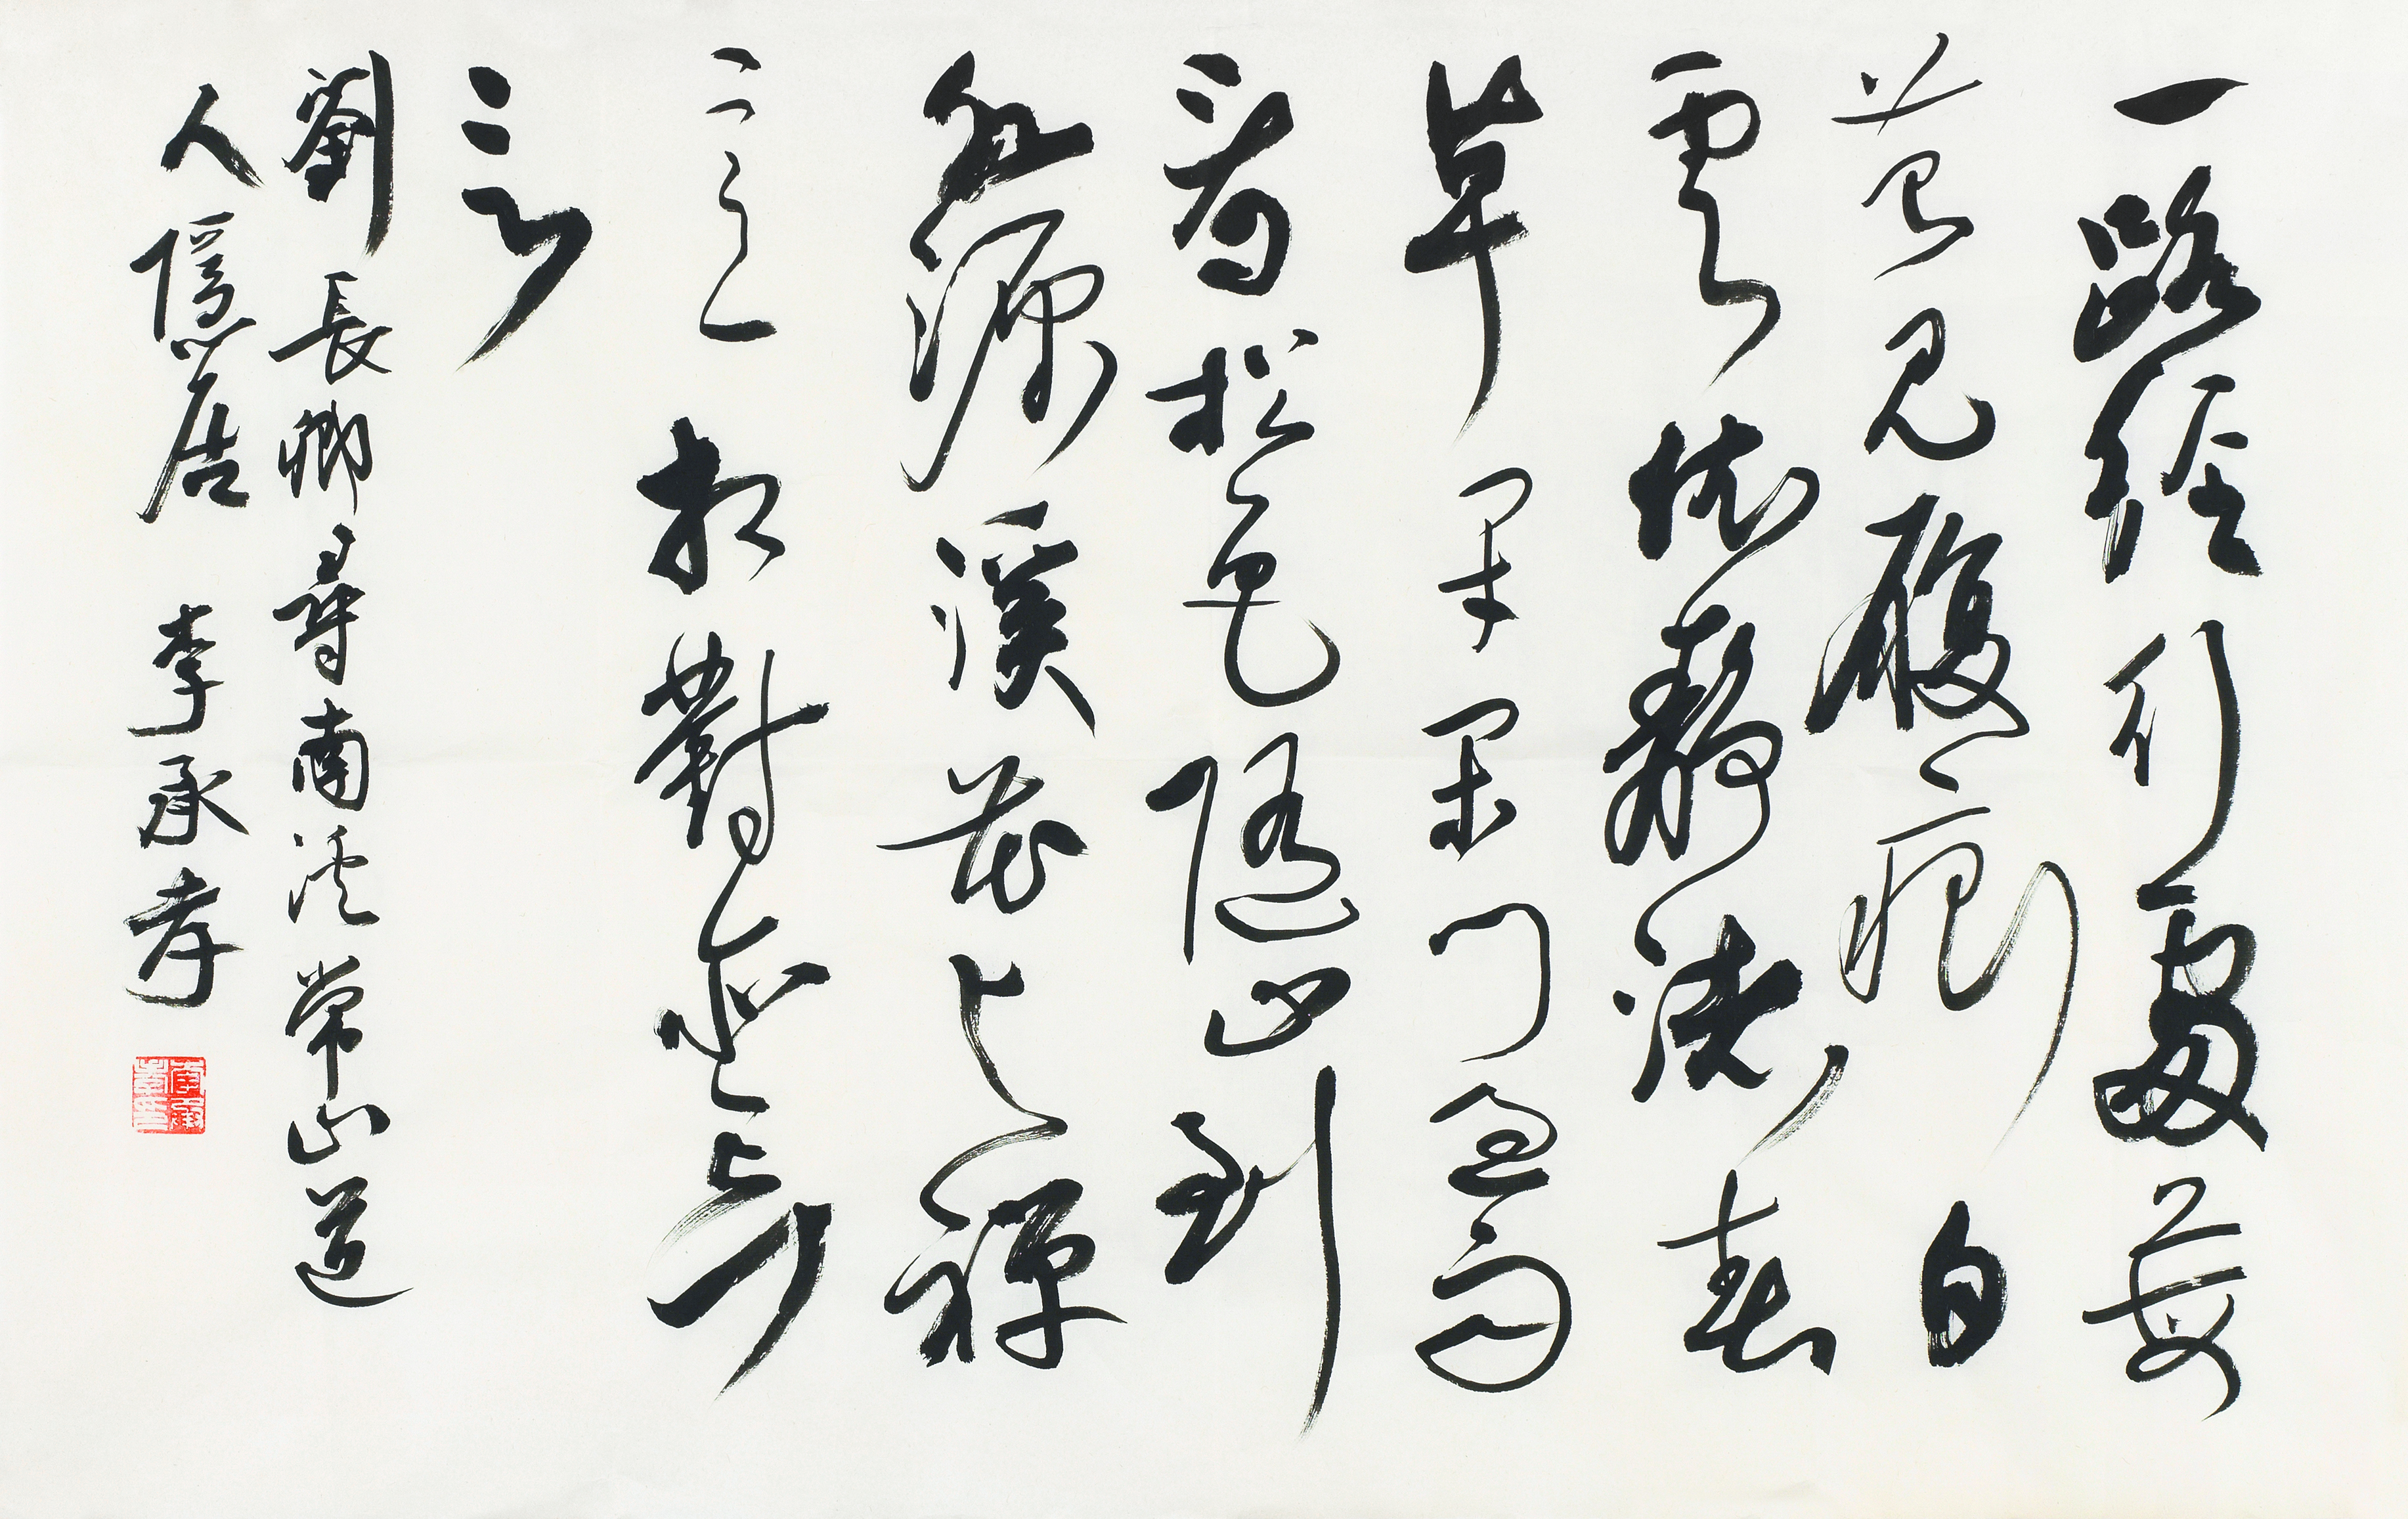 一路經行處莓
苔見履痕白
雲依靜渚春
草閉閑門過雨
看松色隨山到
水源溪花与禪
意相對亦忘
言
劉長卿尋南溪常山道
人隱居 李承孝